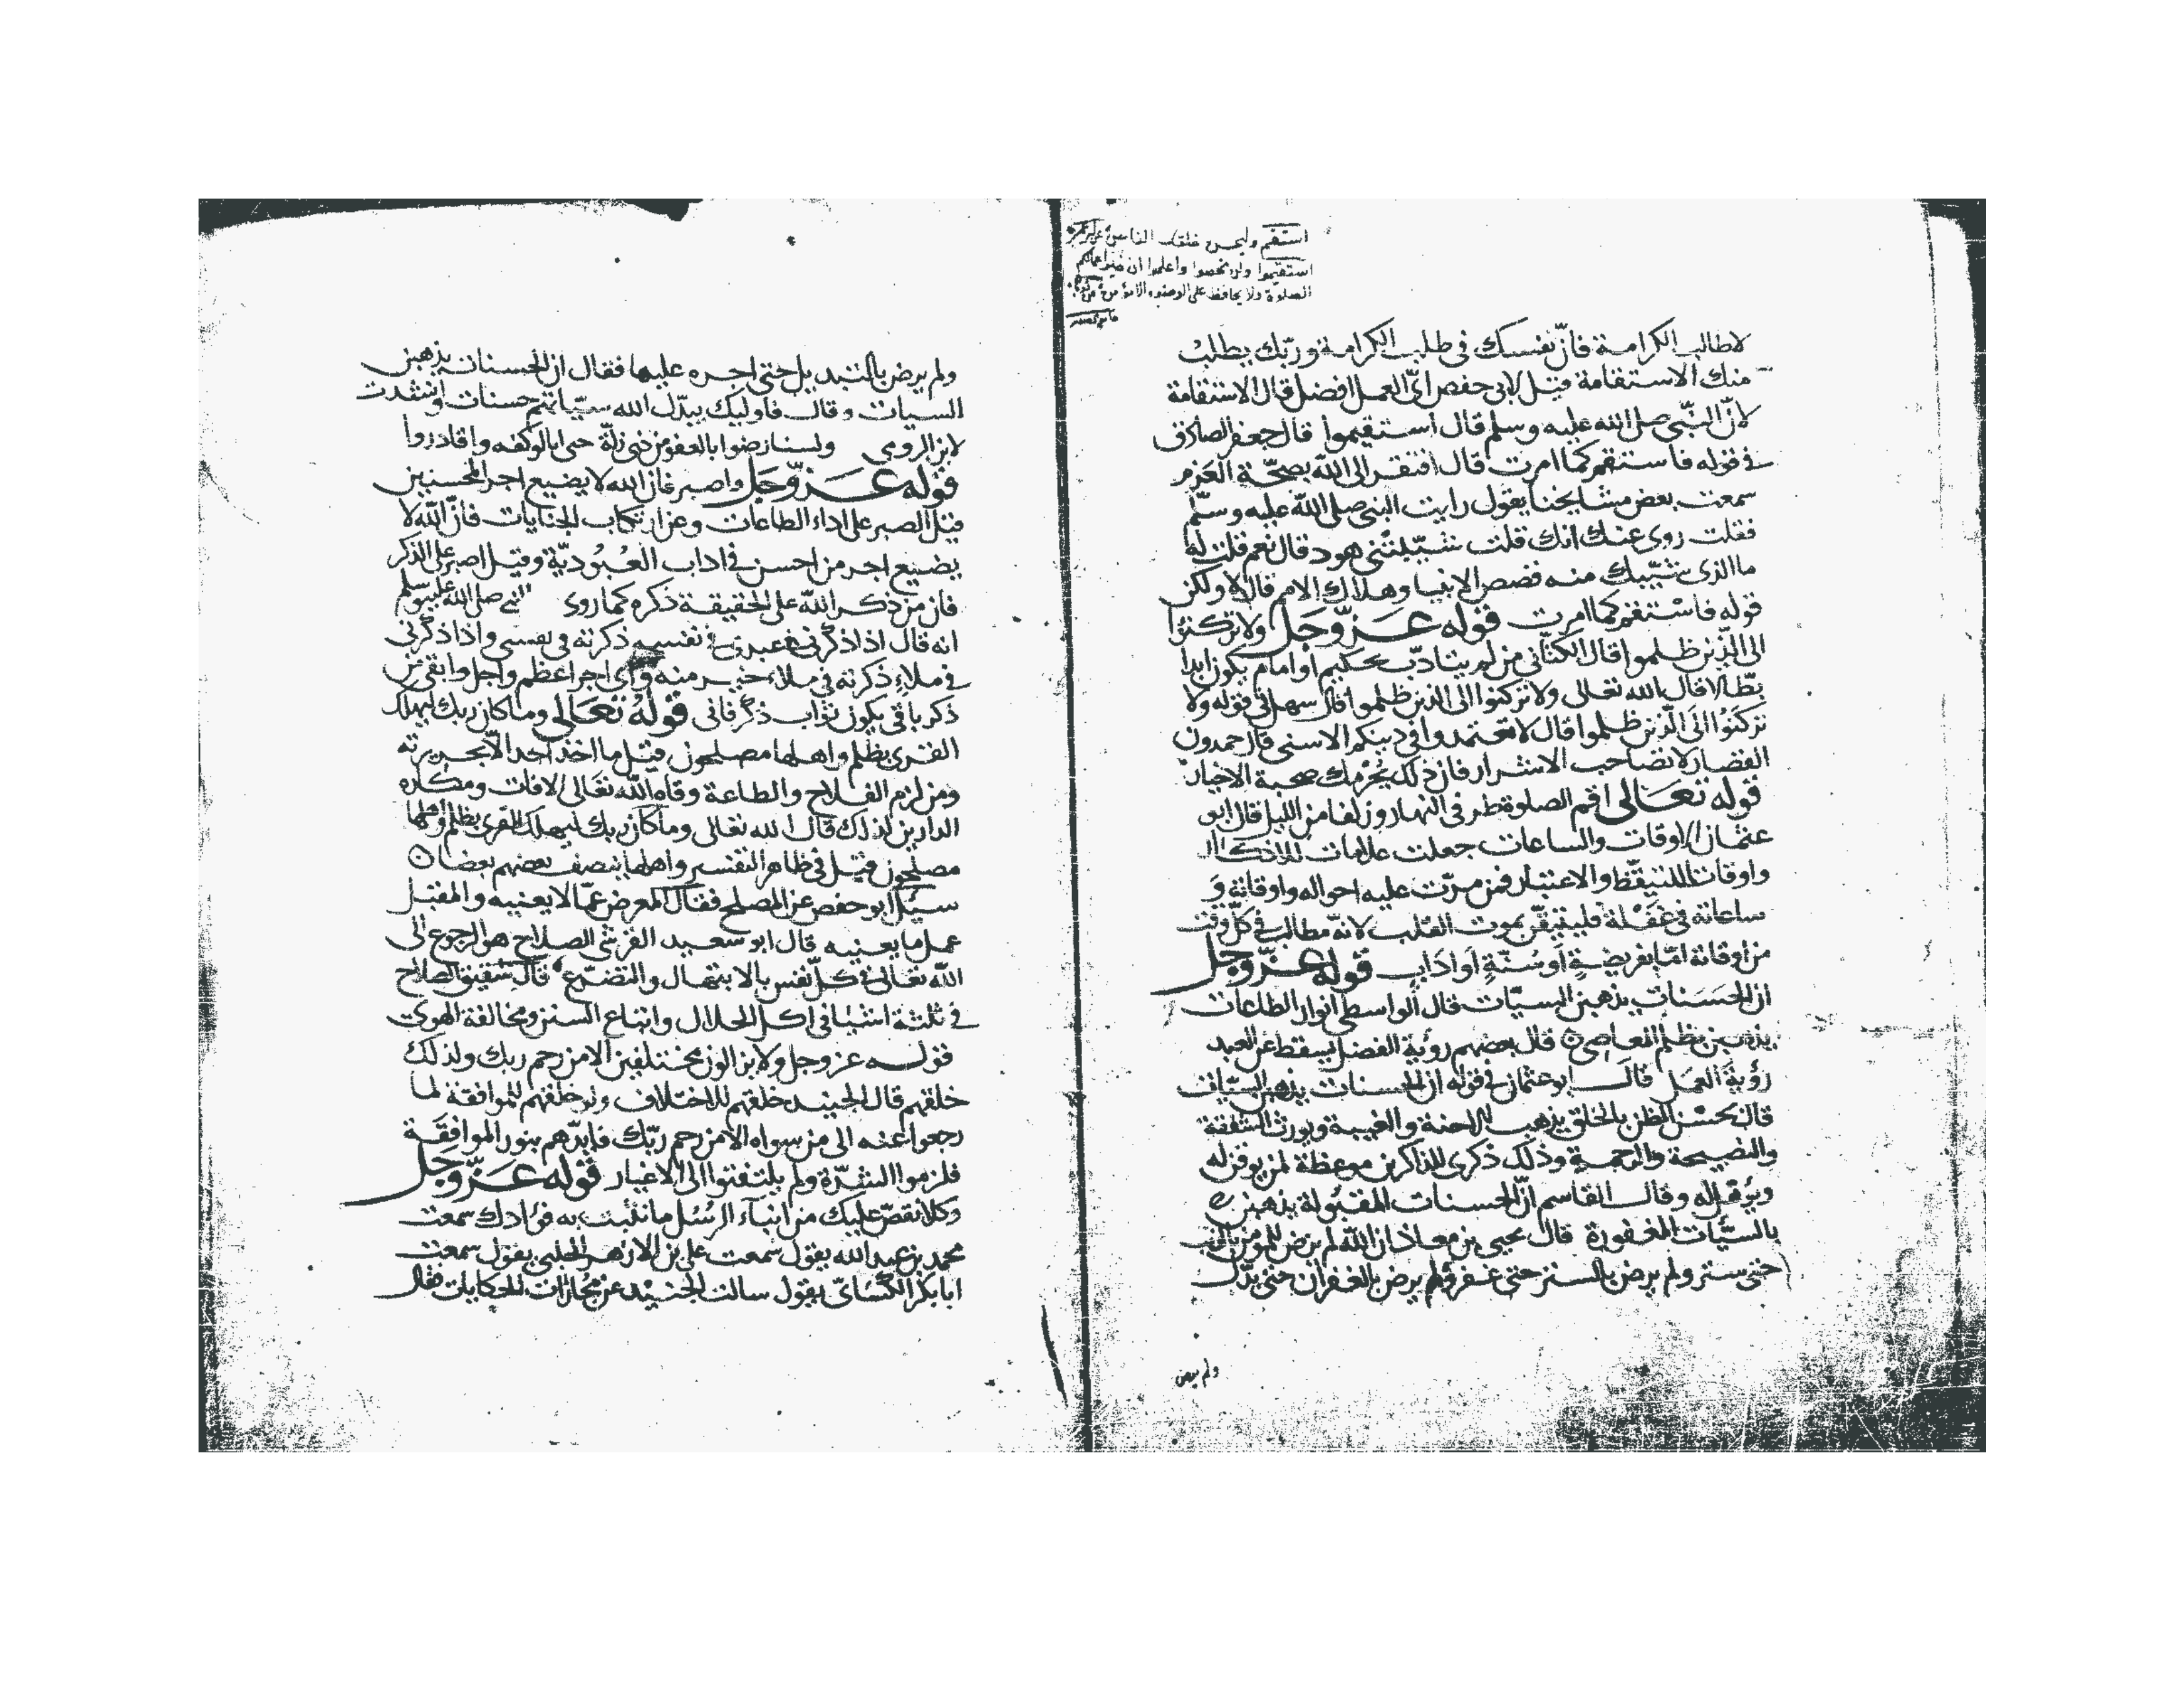 استقم وليحسن خلقك للناس
استقيموا ولن تحصوا واعلموا ان خير اعمالكم
الصلوة ولا يحافظ على الوضوء الا مؤمن
لا طالب الكرامة فانّ نفسك فى طلب الكرامة وربّك يطلب
منك الاستقامة قيل لابى حفص اىّ العمل افضل قال الاستقامة
لانّ النّبّى صلى الله عليه وسلم قال استقيموا قال جعفر الصادق
فى قوله فاستقم كما امرت قال افتقر الى الله بصحّة العزم
سمعت بعض مشايخنا يقول رايت النبى صلى الله عليه وسلّم
فقلت روى عنك انك قلت شيّبتنى هود قال نعم قلت له
ما الذى شيّبك منه قصص الانبيا وهلاك الامم قال لا ولكن
قوله فاستقم كما امرت قوله عزّ وجل ولا تركنوا
الى الّذين ظلموا قال الكتّانى من لم يتادّب بحكيم او امام يكون ابدا
بطّالا قال الله تعالى ولا تركنوا الى الذين ظلموا قال سهل فى قوله ولا
تركنوا الى الّذين ظلموا قال لا تعتمدوا فى دينكم الا سنى قال حمدون
القصار لا تصاحب الاشرار فان ذلك يحرمك صحبة الاخيار
قوله تعالى اقم الصلوة طرفى النهار وزلفا من الليل قال ابو
عثمان الاوقات والساعات جعلت علامات للاذكار
واوقاتا للتيقّظ والاعتبار فمن مرّت عليه احواله واوقاته و
ساعاته فى غفلة فليتيقّن بموت القلب لانّه مطالب فى كلّ وقت
من اوقاته امّا بفريضةٍ او سُنّةٍ او اداب قوله عزّ وجل
ان الحسنات يذهبن السيّات قال الواسطى انوار الطاعات
يذهبن بظلم المعاصى قال بعضهم رؤية الفضل يسقط عن العبد
رؤية العمل قال ابو عثمان فى قوله ان الحسنات يذهبن السيّات
قال بحسن الظن بالخلق يذهب الاحنة والغيبة ويورث الشفقة
والنصيحة والرحمة وذلك ذكرى للذاكرين موعظة لمن يوفق له
ويؤهل له وقال القاسم انّ الحسنات المقبولة يذهبن
بالسّيّات المغفورة قال يحيى بن معاذ ان الله لم يرض للمومن بالذنب
حتى ستر ولم يرض بالستر حتى غفر ولم يرض بالغفران حتى بدّل
ولم يرض
ولم يرض بالتبديل حتى اجره عليها فقال ان الحسنات يذهبن
السيات وقال فاوليك يبدّل الله سيّاتهم حسنات وانشدت
لابن الرومى ولسنا رضوا بالعفو من ذى زلّة
قوله عزّ وجل واصبر فان الله لا يضيع اجر المحسنين
قيل الصبر على اداء الطاعات وعن ارتكاب الجنايات فانّ الله لا
يضيع اجر من احسن فى اداب العُبُوديّة وقيل اصبر على الذكر
فان من ذكر الله على الحقيقة ذكره كما روى النبى صلى الله عليه وسلم
انه قال اذا ذكرنى عبدى فى نفسه ذكرته فى نفسى واذا ذكرنى
فى ملاءٍ ذكرته فى ملاء خير منه واى اجر اعظم واجل وابقى من
ذكر باقى يكون ثواب ذكر فانى قوله تعالى وما كان ربك ليهلك
القرى بظلم واهلها مصلحون قيل ما اخذ احد الا بجريرته
ومن لزم الفلاح والطاعة وقاه الله تعالى الافات ومكاره
الدارين لذلك قال الله تعالى وما كان ربك ليهلك القرى بظلم واهلها
مصلحون قيل فى ظاهر التفسير واهلها ينصف بعضهم بعضا
سيُل ابو حفص عن المصلح فقال المعرض عمّا لا يعنيه والمقبل
على ما يعنيه قال ابو سعيد القرشى الصلاح هو الرجوع الى
الله تعالى فى كلّ نفس بالابتهال والتضرّع قال شقيق الصلاح
فى ثلثة اشيا فى اكل الحلال واتباع السنن ومخالفة الهوى
قوله عز وجل ولا يزالون مختلفين الا من رحم ربك ولذلك
خلقهم قال الجنيد خلقهم للاختلاف ولو خلقهم للموافقة لما
رجعوا عنه الى من سواه الا من رحم ربّك فايدّهم بنور الموافقة
فلزموا السّدّة ولم يلتفتوا الى الاغيار قوله عزّ وجل
وكلا نقصّ عليك من انباء الرسُل ما نثبت به فؤادك سمعت
محمد بن عبد الله يقول سمعت على بن الازهر الحلبى يقول سمعت
ابا بكر الكسائى يقول سالت الجنيد عن مجازات الحكايات فقال